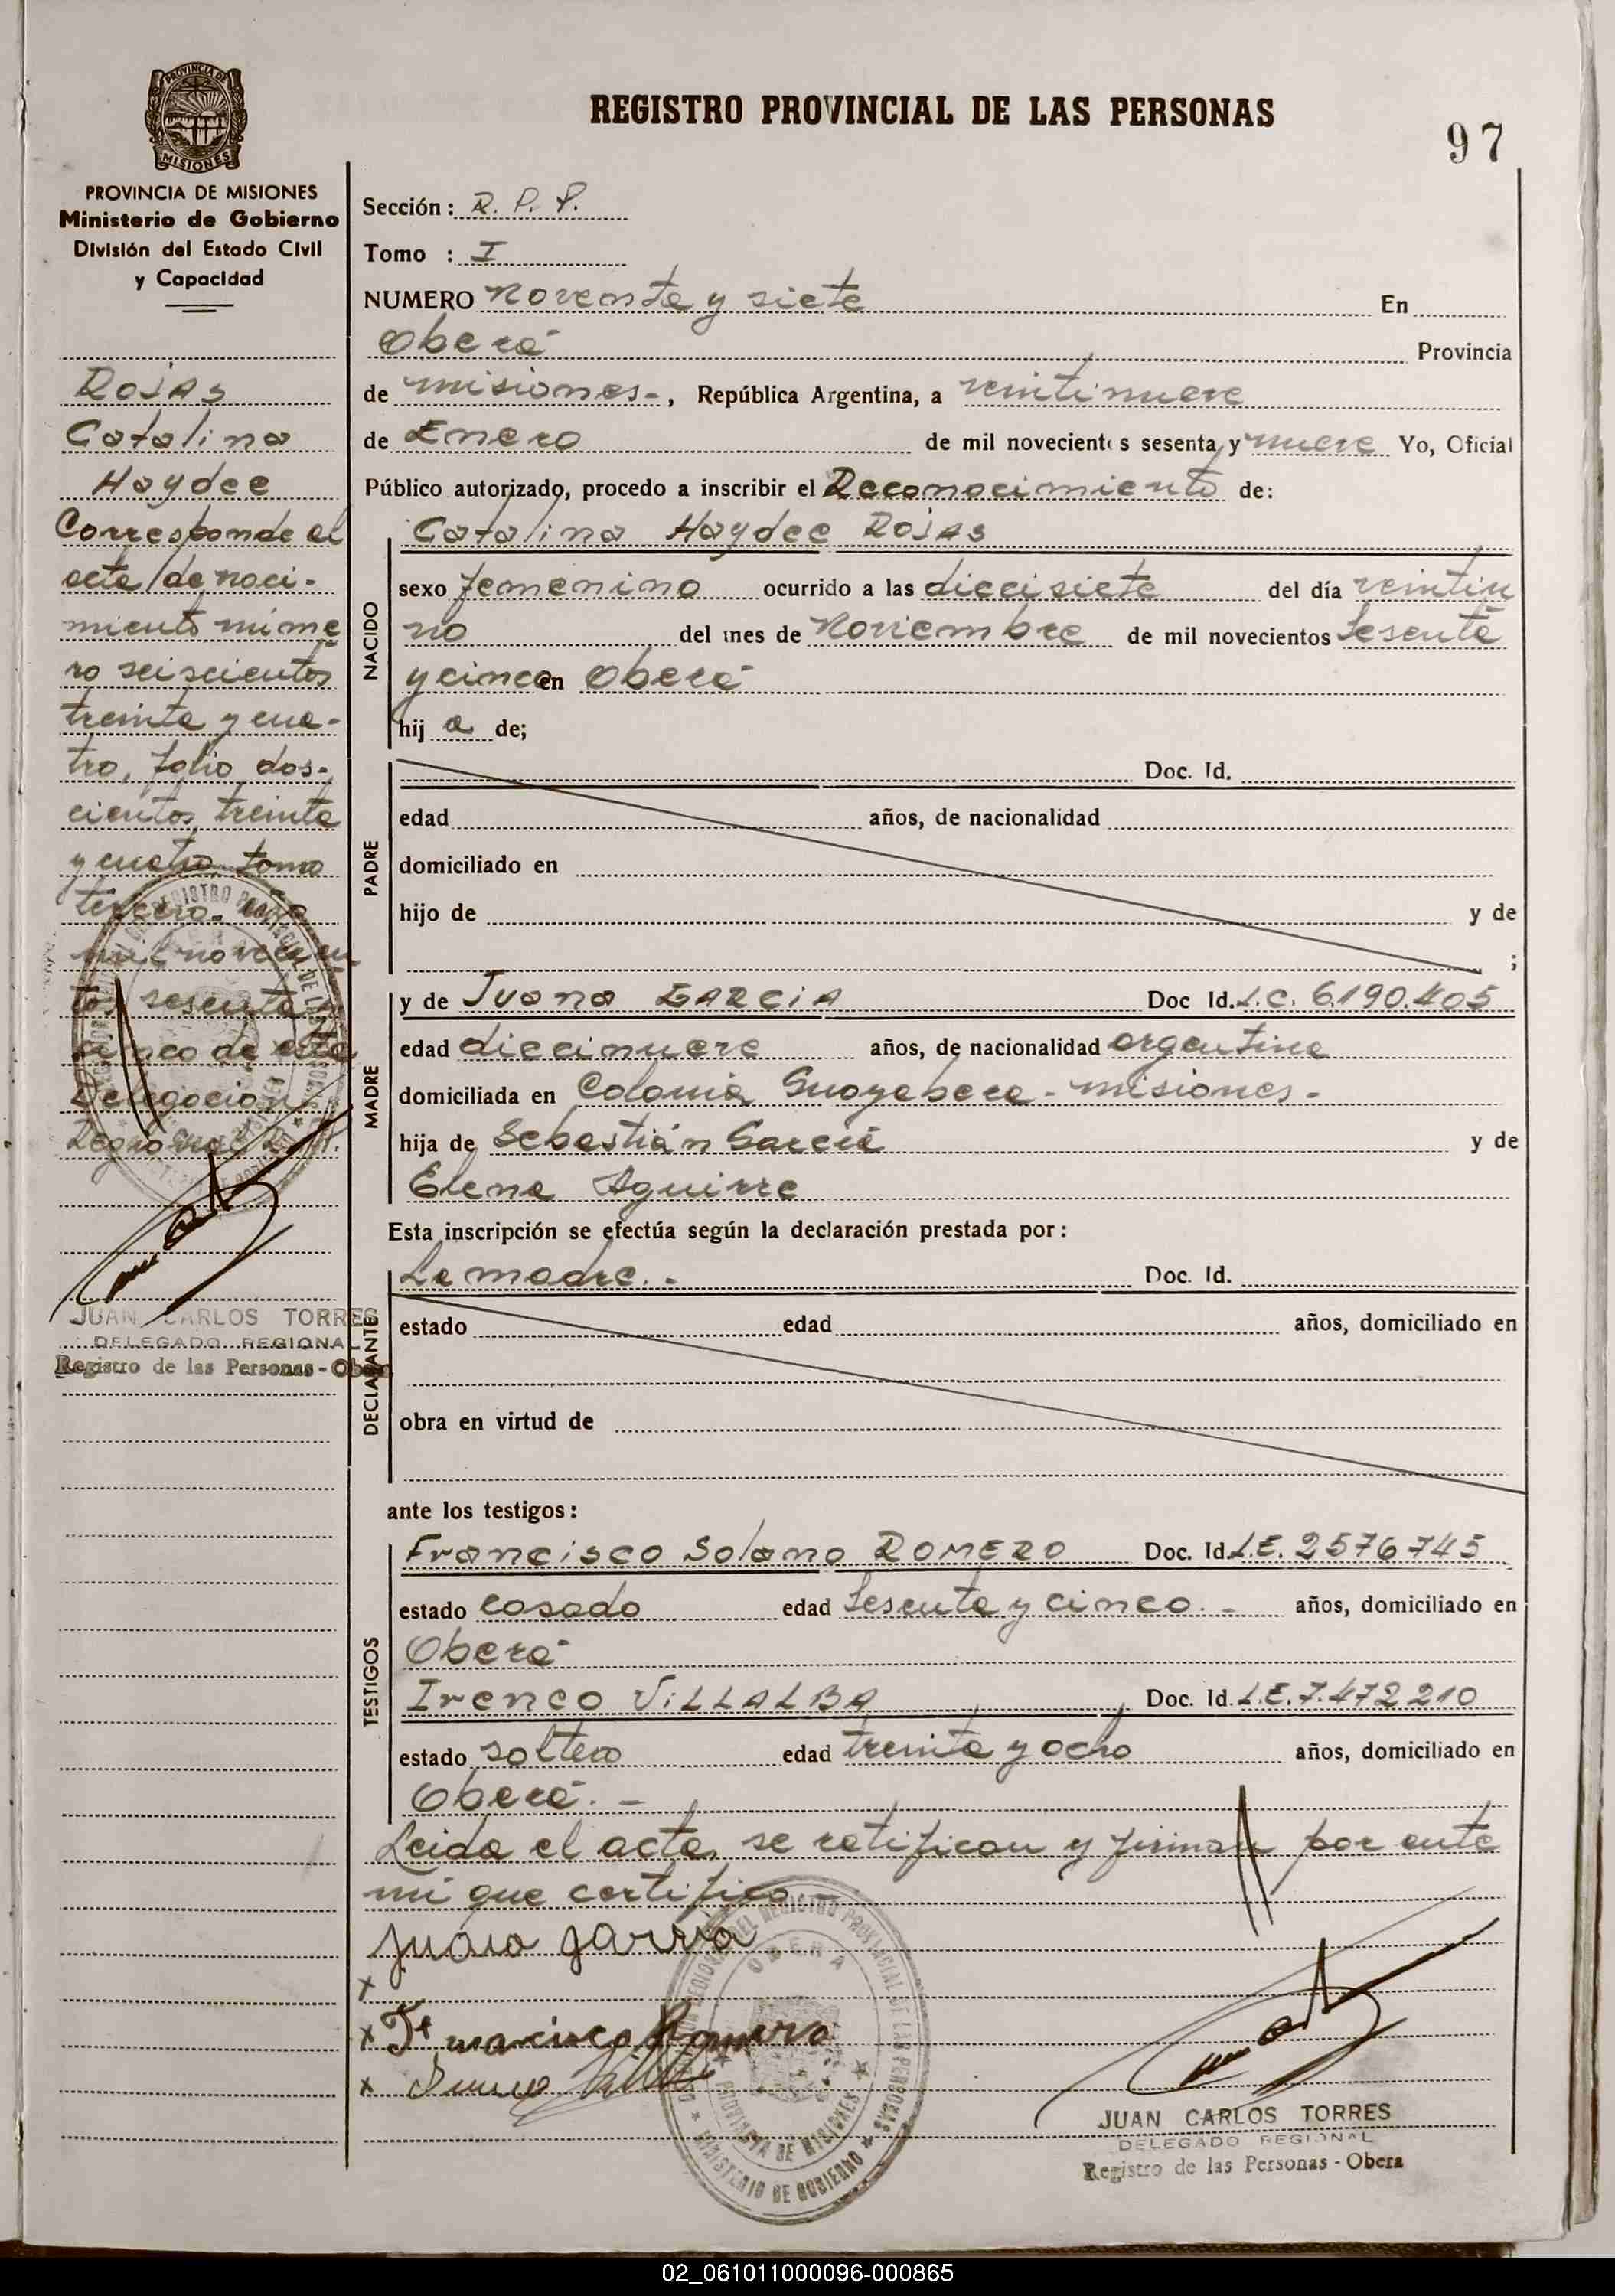 PROVINCIA DE MISIONES
REGISTRO PROVINCIAL DE LAS PERSONAS
97
PROVINCIA DE MISIONES
Ministerio de Gobierno
División del Estado Civil
y Capacidad
Rojas
Catalina
Haydee
Corresponde al
acta de naci-
miento núme
ro seiscientos
treinta y cua-
tro, folio dos-
cientos treinta
y cuatro tomo
tercero- año
mil novecien
tos sesenta y
cinco de esta
Delegación
Regional
JUAN CARLOS TORRES
DELEGADO REGIONAL
Registro de las Personas - Obera
Sección: R. P. P.
Tomo : I
NUMERO Noventa y siete En
Oberá Provincia
de Misiones-, República Argentina, a veintinueve
de Enero de mil novecientos sesenta y nueve Yo, Oficial
Público autorizado, procedo a inscribir el Reconocimiento de:
NACIDO
Catalina Haydee Rojas
sexo femenino ocurrido a las diecisiete del día veintiu
no del mes de Noviembre de mil novecientos Sesenta
y cinco en Oberá
hij a de;
PADRE
Doc. Id.
edad años, de nacionalidad
domiciliado en
hijo de y de
;
MADRE
y de Juana GARCIA Doc Id. L.C. 6.190.405
edad diecinueve años, de nacionalidad argentina
domiciliada en Colonia Guayabera - Misiones-
hija de Sebastián García y de
Elena Aguirre
Esta inscripción se efectúa según la declaración prestada por:
DECLARANTE
La madre.- Doc. Id.
estado edad años, domiciliado en
obra en virtud de
ante los testigos:
TESTIGOS
Francisco Solano ROMERO Doc. Id. L.E. 2576745
estado casado edad Sesenta y cinco.- años, domiciliado en
Oberá
Ireneo VILLALBA Doc. Id. L.E. 7.472210
estado soltero edad treinta y ocho años, domiciliado en
Oberá.-
Leida el acta, se ratifican y firman por ante
mí que certifico
Juana garcia
x
x Francisco Romero
x Ireneo
OBERA
PROVINCIA DE MISIONES
MINISTERIO DE GOBIERNO
JUAN CARLOS TORRES
DELEGADO REGIONAL
Registro de las Personas - Obera
02_061011000096-000865